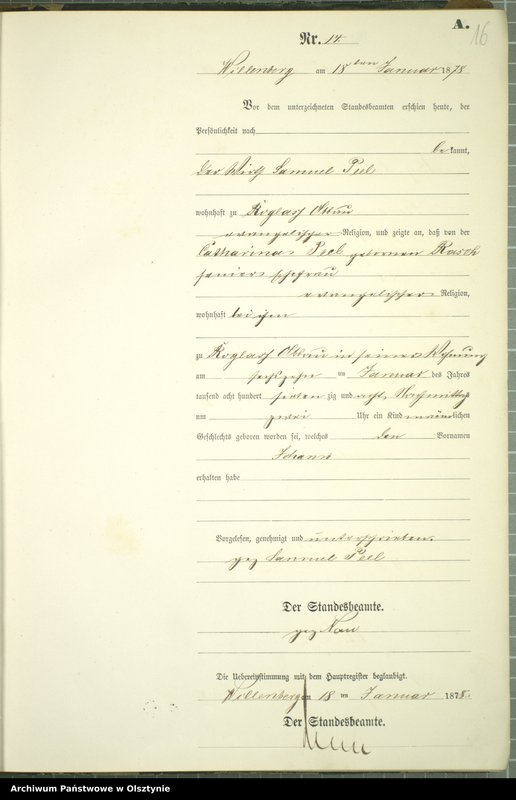 A.
16
Nr. 14
Willenberg am 18ten Januar 1878
Vor dem unterzeichneten Standesbeamten erschien heute, der
Persönlichkeit nach
bekannt,
der Wirth Samuel Peel
wohnhaft zu Roglas Ottau
evangelischer Religion, und zeigte an, daß von der
Catharina Peel geborenen Rasch
seiner Ehefrau
evangelischer Religion,
wohnhaft bei ihm
zu Roglas Ottau in seiner Wohnung
am sechszehn ten Januar des Jahres
tausend acht hundert sieben zig und acht, Nachmittags
um zwei Uhr ein Kind männlichen
Geschlechts geboren worden sei, welches den Vornamen
Johann
erhalten habe
Vorgelesen, genehmigt und unterschrieben.
gez Samuel Peel
Der Standesbeamte.
gez
Die Uebereinstimmung mit dem Hauptregister beglaubigt.
Willenberg am 18 ten Januar 1878.
Der Standesbeamte.
Archiwum Państwowe w Olsztynie